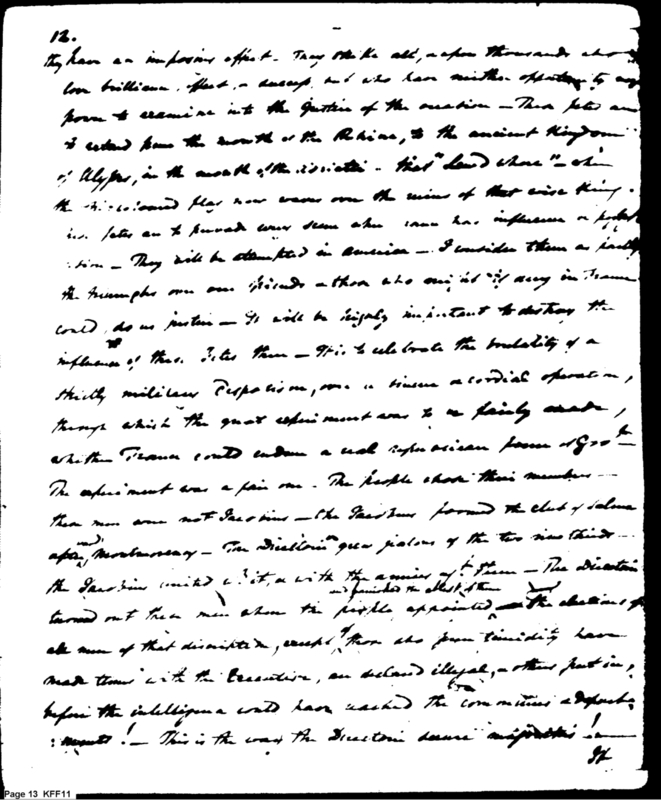 12.
they have an imposing effect. They strike all, & upon thousands who
love brilliance, effect, & and who have neither opportunity nor
power to examine into the Justice of the ovation — These fetes are
to extend from the mouth of the Rhine, to the ancient Kingdom
of in the mouth of the — that "
the flag now waves over the ruins of that wise King.
fetes are to pervade every scene where has influence or
They will be attempted in America — I consider them as partly
the triumphs over our friends & those who might if any in France
could, do us justice — It will be highly important to destroy the
influence of these fetes then — It is to celebrate the brutality of a
strictly military Despotism, over a sincere & cordial operation,
through which the great experiment was to be fairly made,
whether France could endure a real republican form of Govt —
The experiment was a fair one. The people chose their members —
these men were not Jacobins — The Jacobins formed the club of Salm
after, and Montmorency — The Directory grew jealous of the two new thirds —
the Jacobins united with it, & with the armies agt them — The Directory
and punished the ablest of them
turned out these men whom the people appointed — the elections of
all men of that description, except of those who from timidity have
made terms with the Executive, are declared illegal, & others put in,
before the intelligence could have reached the communes & depart-
ments! — This is the way the Directory secure majorities! —
It
Page 13 KFF11